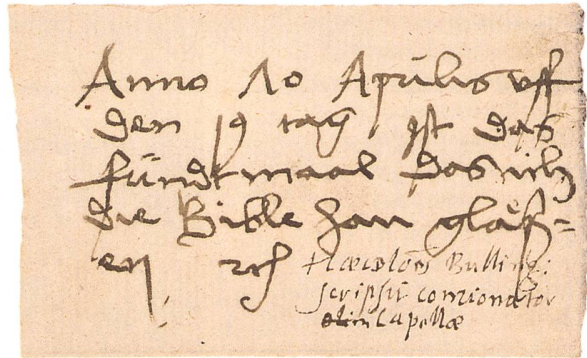 Anno 10 Aprilis uff
den 19 tag ist das
fündt maal das ich
die Bible han gläs=
en
Bulling:
scripsit concionator
olim Capellæ